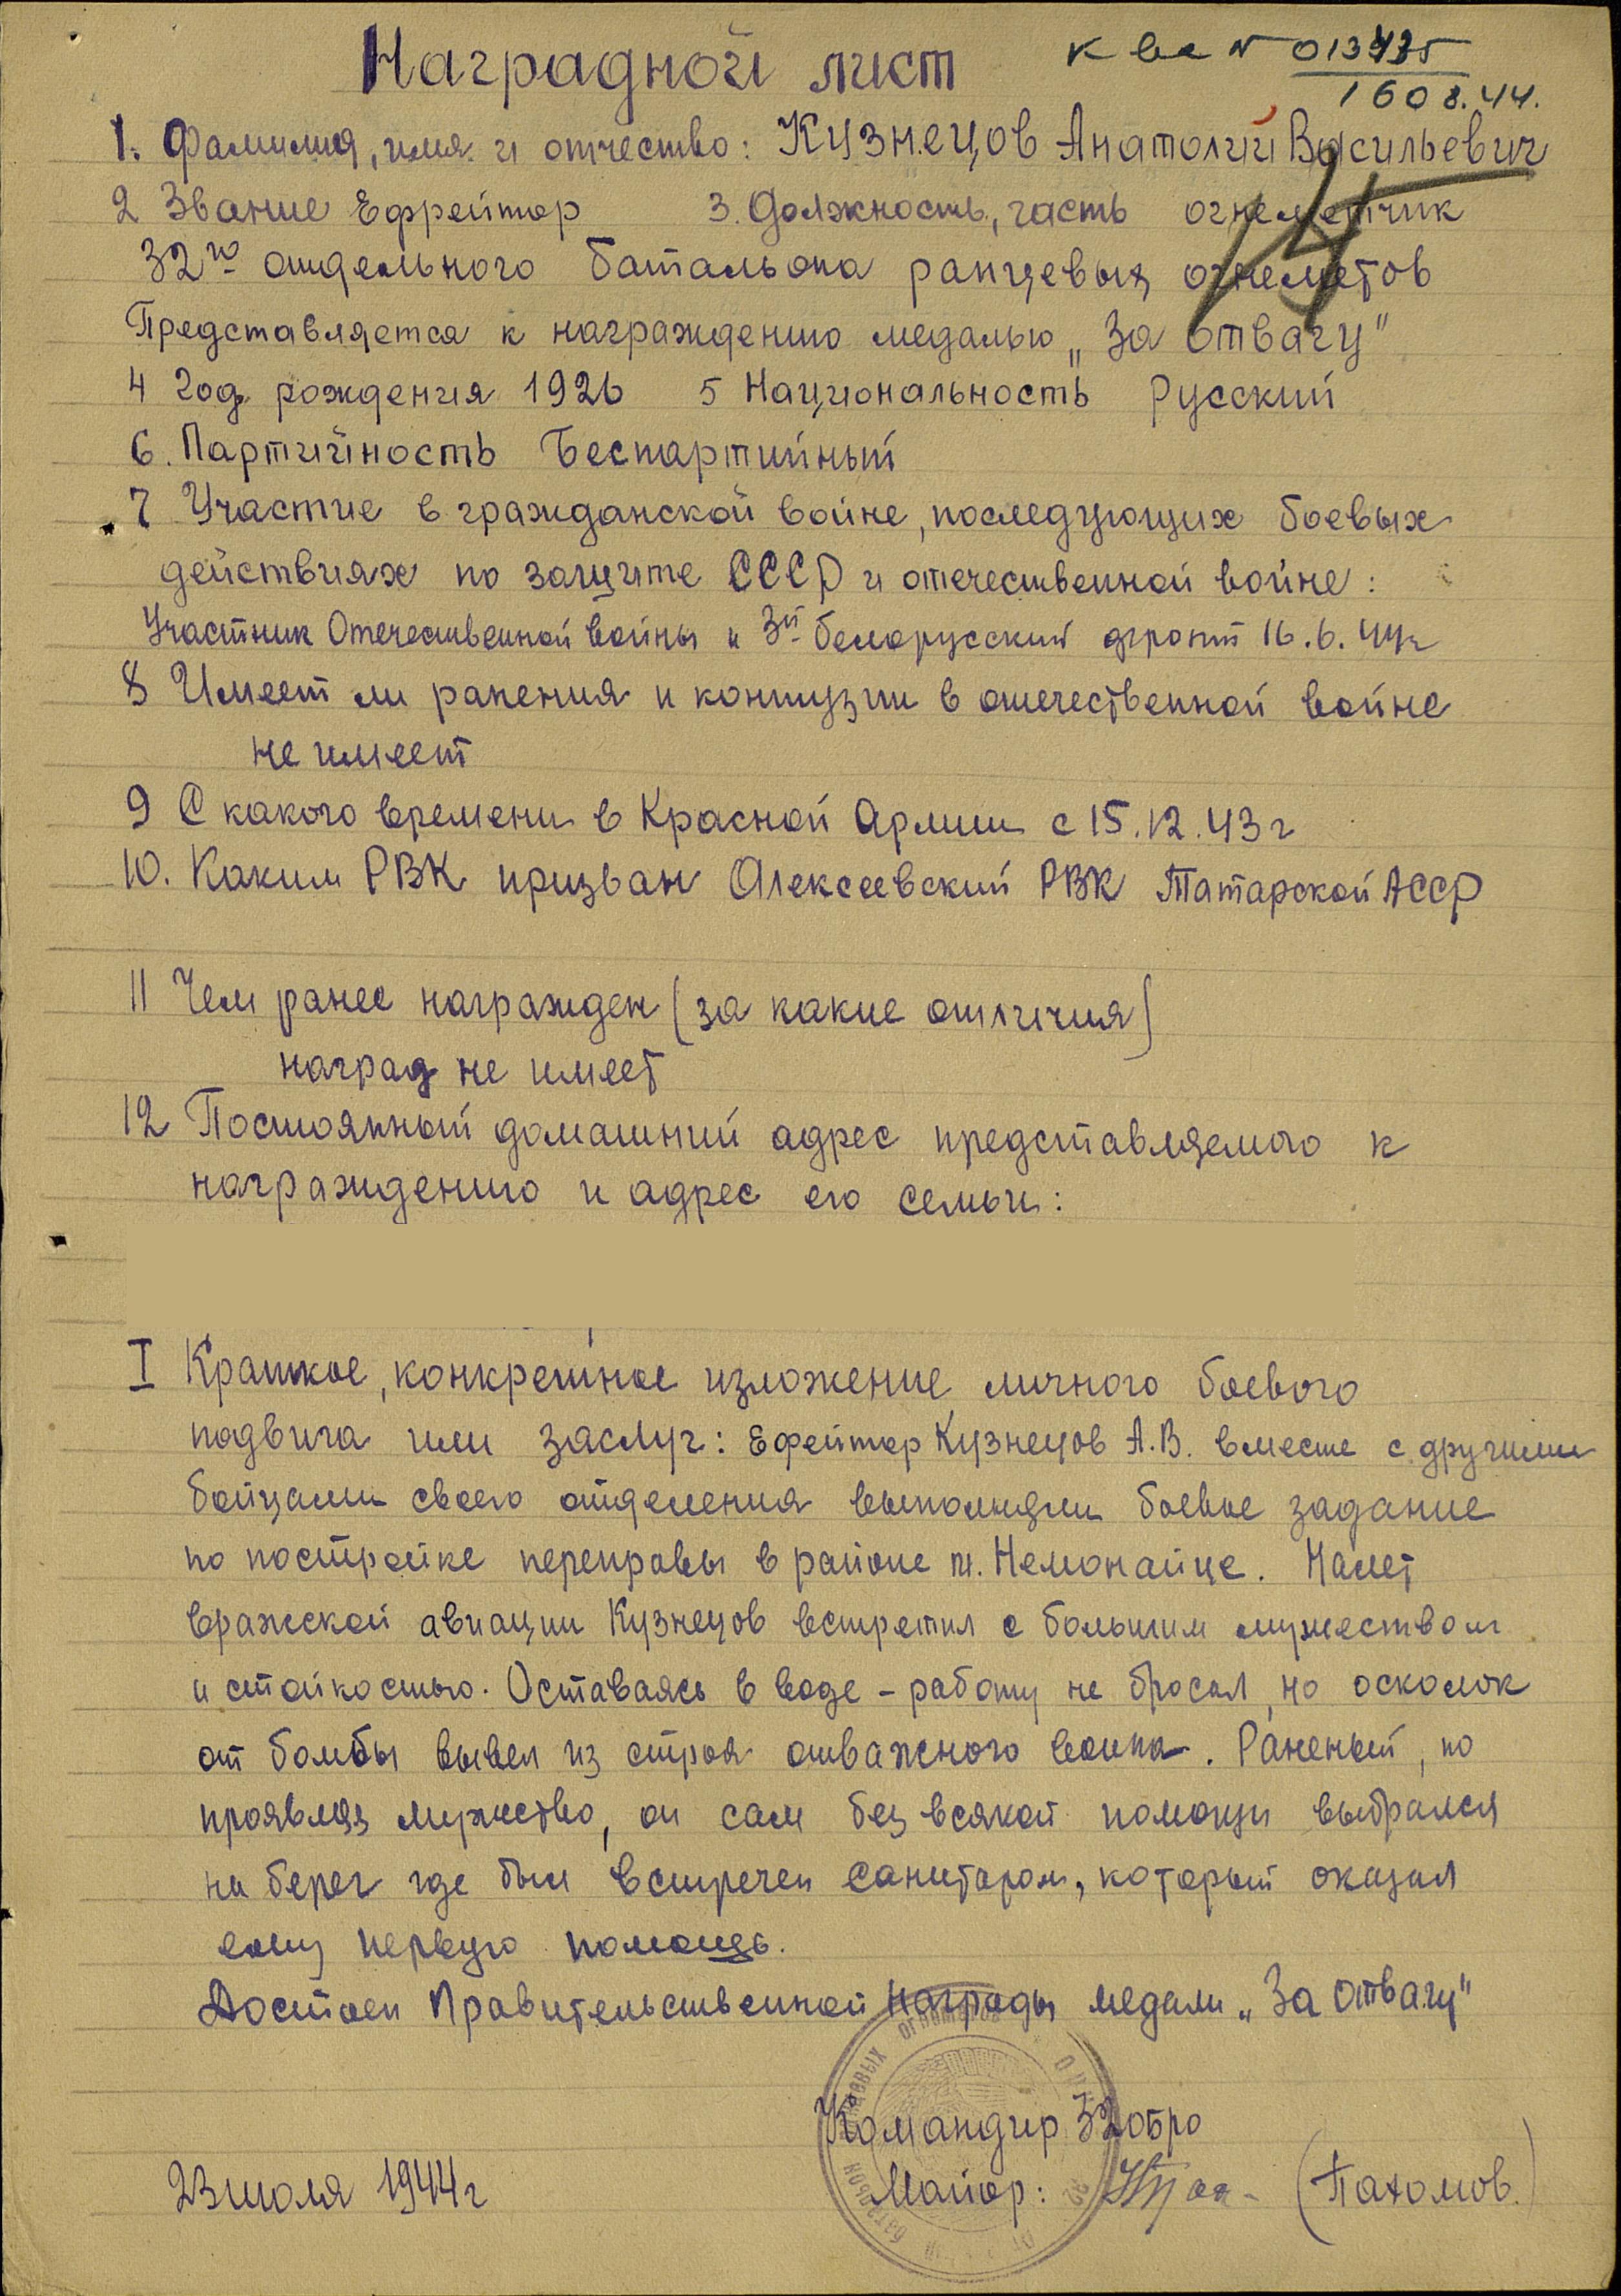 Наградной лист
к вх N 013435
16 08.44.
1. Фамилия, имя и отчество: Кузнецов Анатолий Васильевич
2 Звание Ефрейтор 3. Должность, часть огнеметчик
32го отдельного батальона ранцевых огнеметов
Представляется к награждению медалью „За отвагу"
4 Год рождения 1926 5 Национальность Русский
6. Партийность Беспартийный
7 Участие в гражданской войне, последующих боевых
действиях по защите СССР и отечественной войне:
Участник Отечественной войны 3й белорусский фронт 16.6.44г
8 Имеет ли ранения и контузии в отечественной войне
не имеет
9 С какого времени в Красной Армии с 15.12.43г
10. Каким РВК призван Алексеевский РВК Татарской АССР
11 Чем ранее награжден (за какие отличия)
наград не имеет
12 Постоянный домашний адрес представляемого к
награждению и адрес его семьи:
I Краткое, конкретное изложение личного боевого
подвига или заслуг: Ефейтор Кузнецов А.В. вместе с другими
бойцами своего отделения выполняли боевое задание
по постройке переправы в районе м. Немонайце. Налет
вражеской авиации Кузнецов встретил с большим мужеством
и стойкостью. Оставаясь в воде – работу не бросал, но осколок
от бомбы вывел из строя отважного воина. Раненый, но
проявляя мужество, он сам без всякой помощи выбрался
на берег где был встречен санитаром, который оказал
ему первую помощь.
Достоен Правительственной награды медали „За отвагу"
Командир 32обро
Майор: (Пахомов)
23 июля 1944г